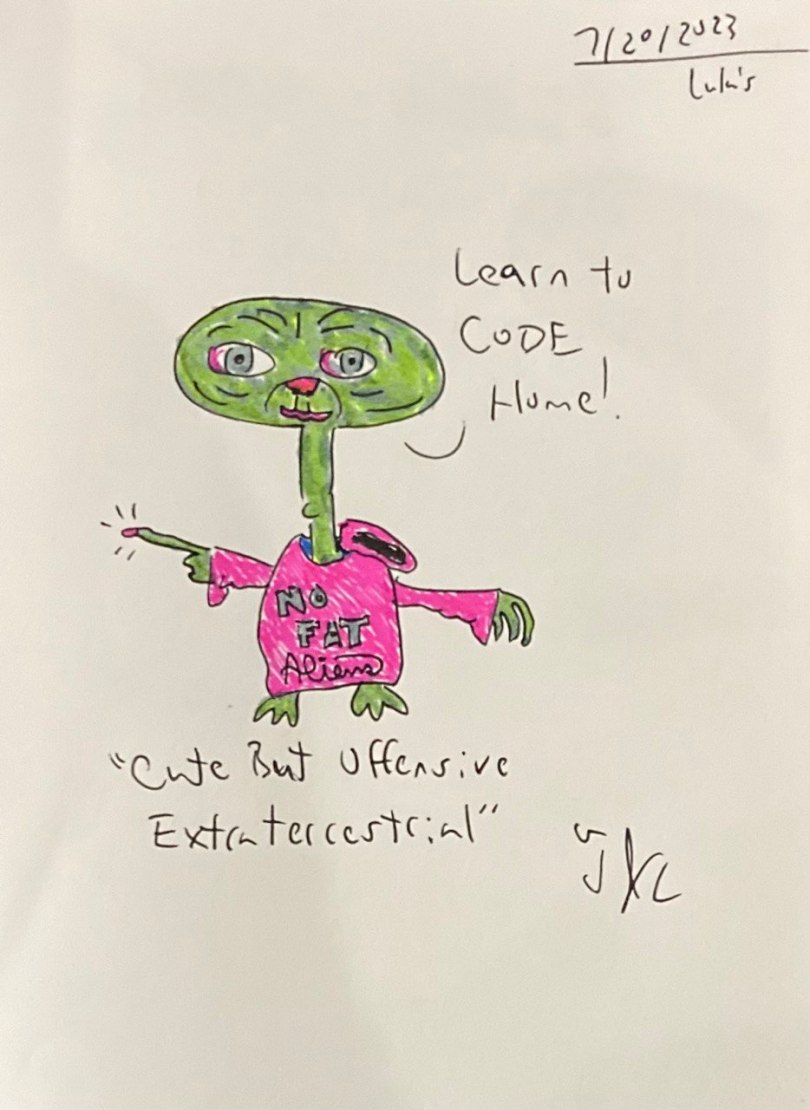 7/20/2023
Lulu's
Learn to
CODE
Home!
NO
FAT
Aliens
"Cute But Offensive
Extraterrestrial"
JKL